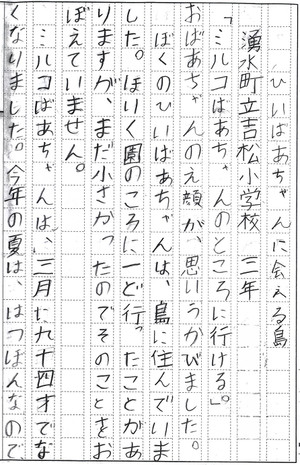 ひいばあちゃんに会える島
湧水町立吉松小学校　三年
「ミルコばあちゃんのところに行ける」。
おばあちゃんのえ顔が、思いうかびました。
ぼくのひいばあちゃんは、島に住んでいま
した。ほいく園のころに一ど行ったことがあ
りますが、まだ小さかったのでそのことをお
ぼえていません。
ミルコばあちゃんは、三月に九十四才でな
くなりました。今年の夏は、はつぼんなので